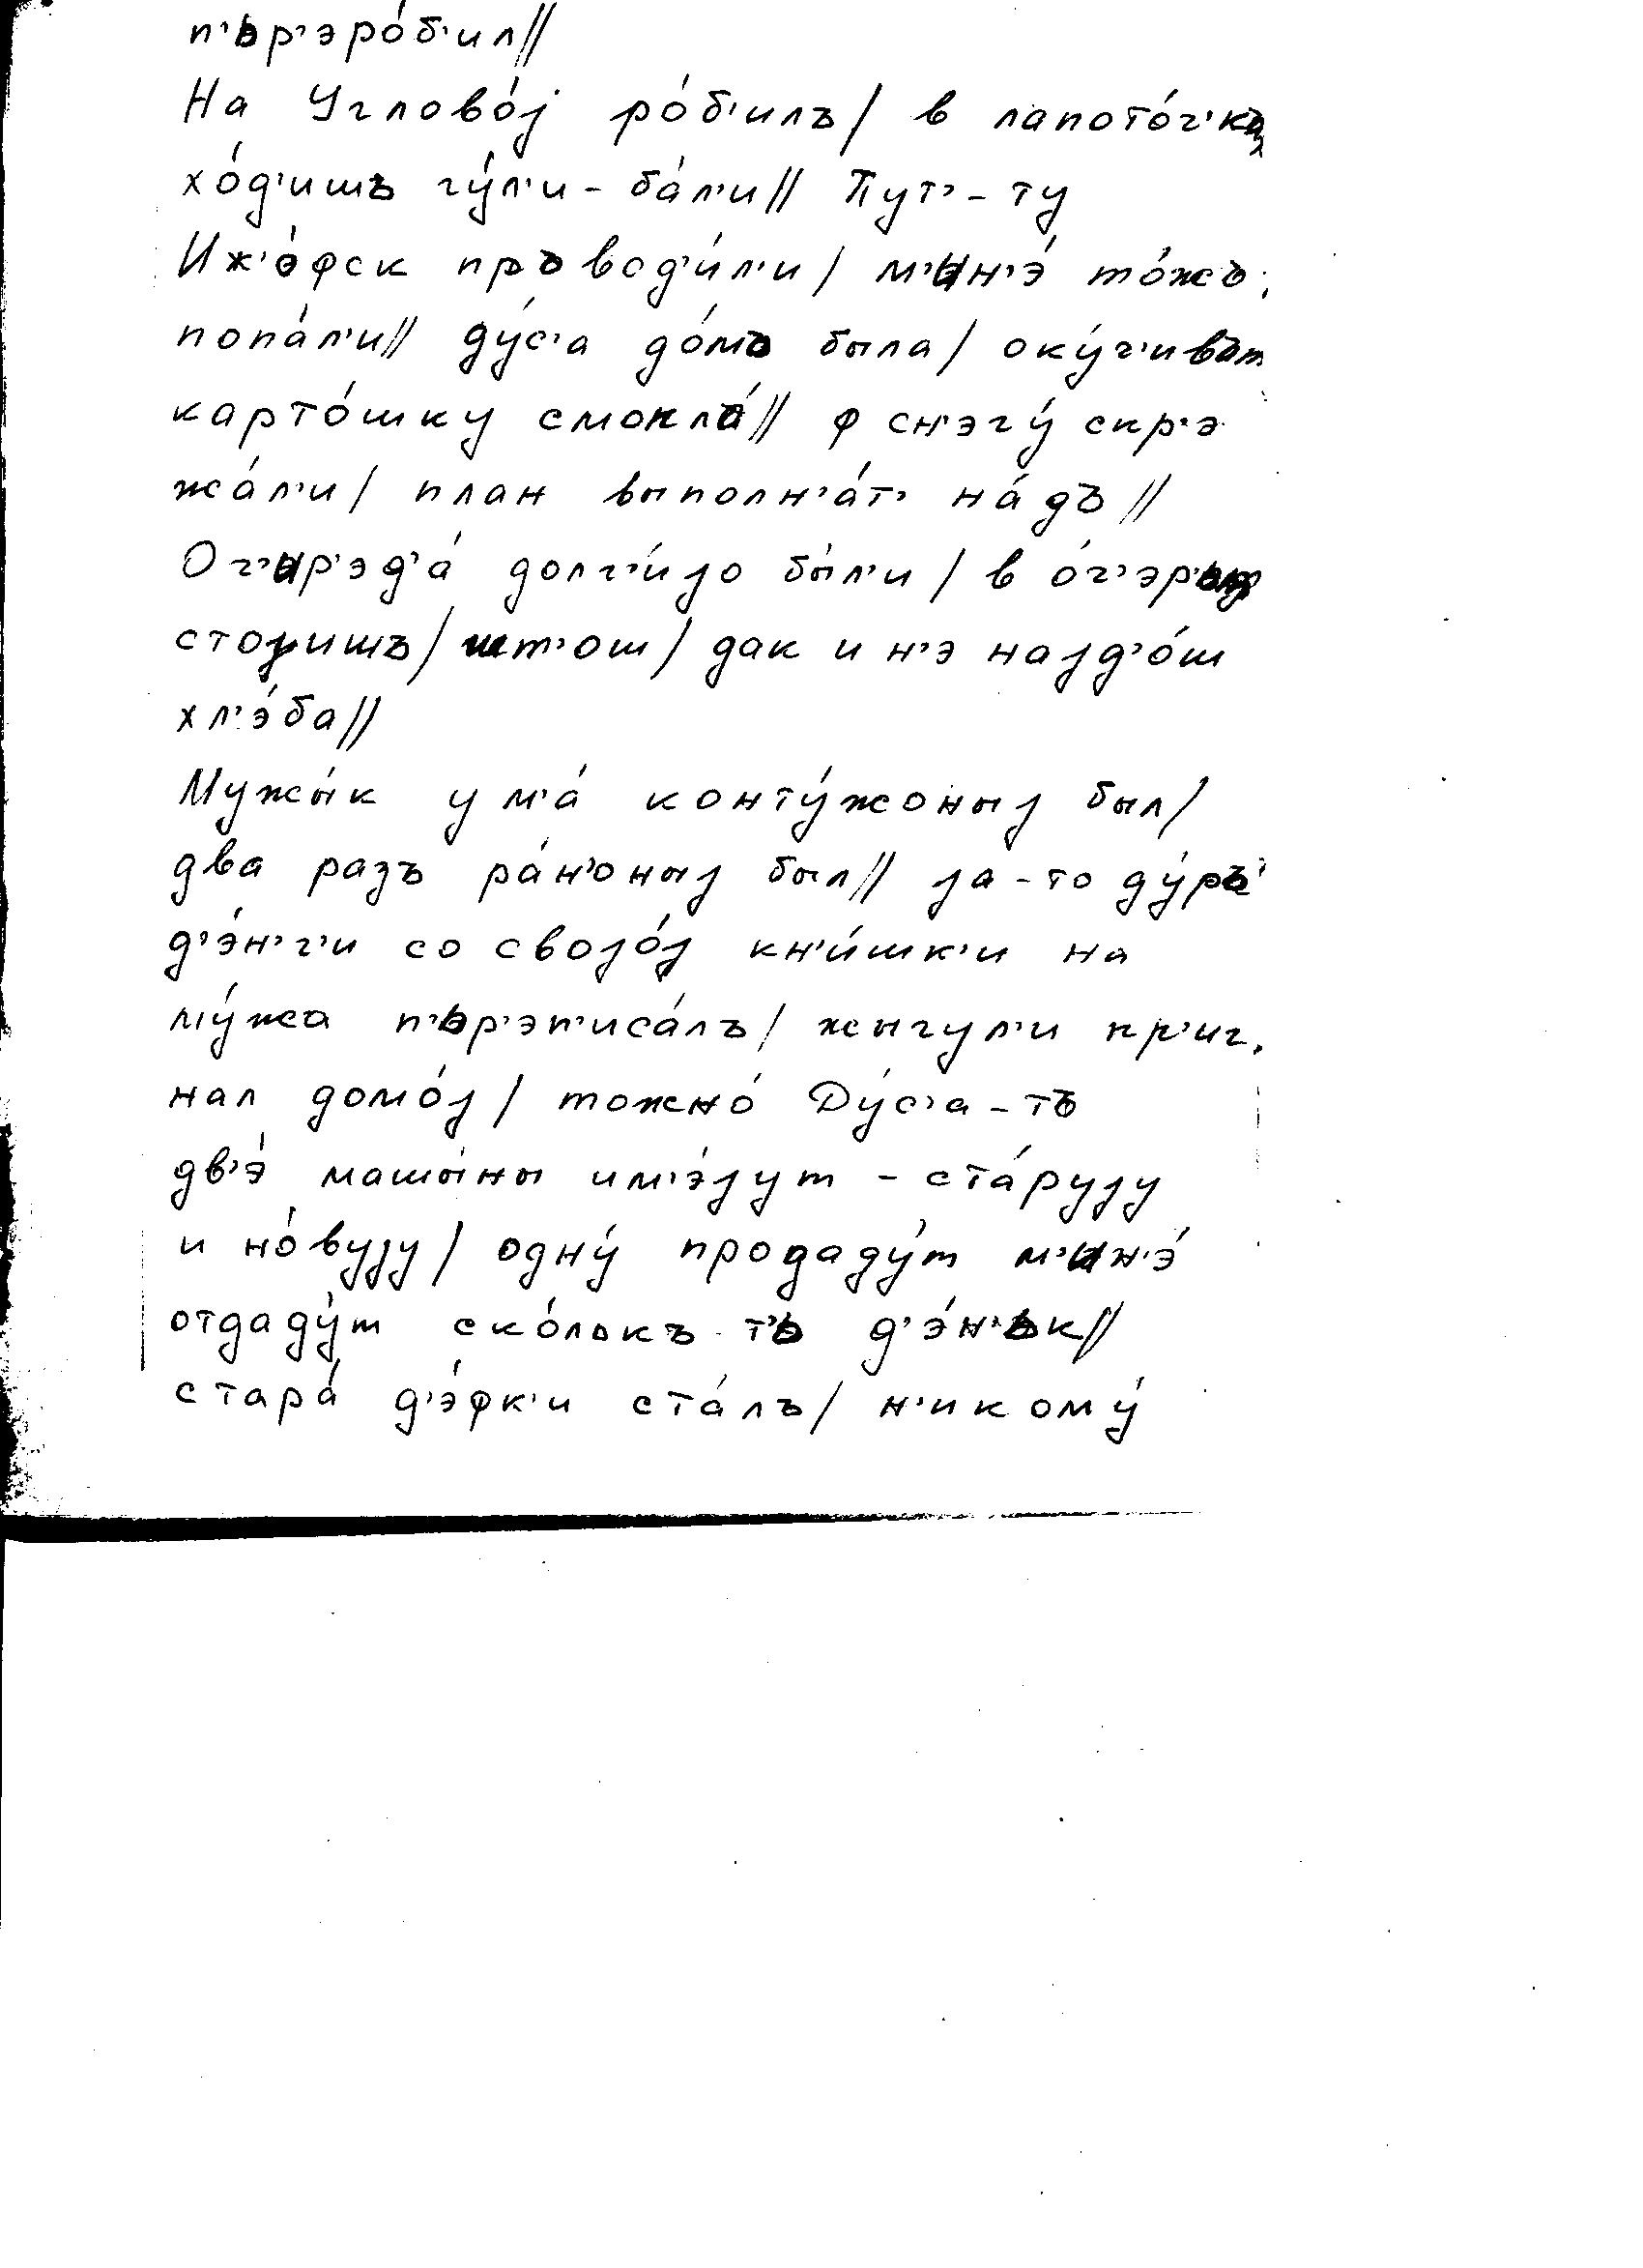 п'ьр'эро́б'ил//
На Углово́ј ро́б'илъ/ в лапото́ч'ках
хо́д'ишъ гу́л'и-ба́л'и// Пут'-ту
Иж'э́фск пръвод'и́л'и/ м'ин'э́ то́жъ
попа́л'и// ду́с'а до́мъ была/ оку́ч'иват
карто́шку смогла́// ф сн'эгу́ скр'э
жа́л'и/ план выполн'а́т' на́дъ//
Оч'ир'эд'а́ долг'и́јо бы́л'и/ в о́ч'эр'
стоjишъ/ шт'ош/ дак и н'э најд'о́ш
хл'э́ба//
Мужы́к у м'а́ конту́жоныј был/
два разъ ра́н'оныј был// ја-то ду́ръ
д'э́н'г'и со својо́ј кн'и́шк'и на
му́жа п'ьр'эп'иса́лъ/ жыгул'и пр'иг
нал домо́ј/ тожно́ Ду́с'а-тъ
дв'э́ машы́ны им'э́јут - ста́рују
и но́вују/ одну́ продаду́т м'ин'э́
отдаду́т ско́лькъ-тъ д'э́н'ьк//
стара́ д'э́фк'и ста́лъ/ н'икому́